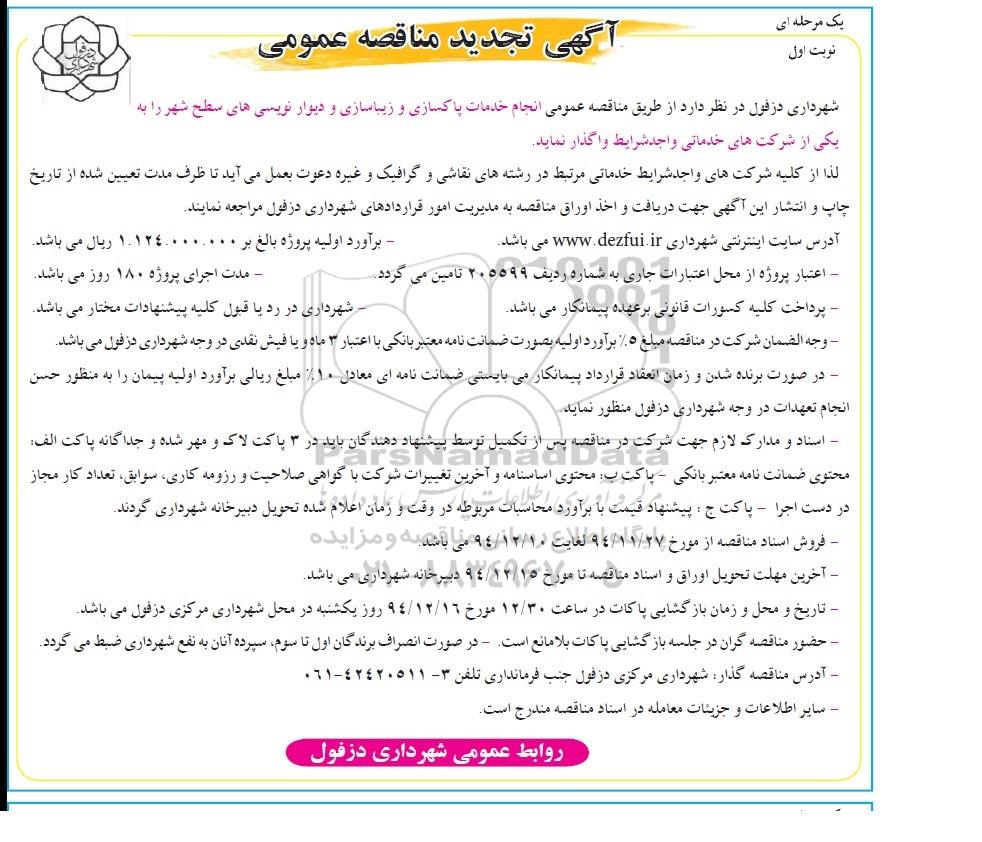 یک مرحله ای
آگهی تجدید مناقصه عمومی
نوبت اول
شهرداری دزفول
شهرداری دزفول در نظر دارد از طریق مناقصه عمومی انجام خدمات پاکسازی و زیباسازی و دیوار نویسی های سطح شهر را به
یکی از شرکت های خدماتی واجدشرایط واگذار نماید.
لذا از کلیه شرکت های واجدشرایط خدماتی مرتبط در رشته های نقاشی و گرافیک و غیره دعوت بعمل می آید تا ظرف مدت تعیین شده از تاریخ
چاپ و انتشار این آگهی جهت دریافت و اخذ اوراق مناقصه به مدیریت امور قراردادهای شهرداری دزفول مراجعه نمایند.
آدرس سایت اینترنتی شهرداری www.dezfui.ir می باشد. – برآورد اولیه پروژه بالغ بر ۱.۱۲٤.۰۰۰.۰۰۰ ریال می باشد.
– اعتبار پروژه از محل اعتبارات جاری به شماره ردیف ۲۰۵۵۹۹ تامین می گردد. – مدت اجرای پروژه ۱۸۰ روز می باشد.
– پرداخت کلیه کسورات قانونی برعهده پیمانکار می باشد. – شهرداری در رد یا قبول کلیه پیشنهادات مختار می باشد.
– وجه الضمان شرکت در مناقصه مبلغ ۵٪ برآورد اولیه بصورت ضمانت نامه معتبر بانکی با اعتبار ۳ ماه و یا فیش نقدی در وجه شهرداری دزفول می باشد.
– در صورت برنده شدن و زمان انعقاد قرارداد پیمانکار می بایستی ضمانت نامه ای معادل ۱۰٪ مبلغ ریالی برآورد اولیه پیمان را به منظور حسن
انجام تعهدات در وجه شهرداری دزفول منظور نماید.
– اسناد و مدارک لازم جهت شرکت در مناقصه پس از تکمیل توسط پیشنهاد دهندگان باید در ۳ پاکت لاک و مهر شده و جداگانه پاکت الف:
محتوی ضمانت نامه معتبر بانکی – پاکت ب: محتوی اساسنامه و آخرین تغییرات شرکت با گواهی صلاحیت و رزومه کاری، سوابق، تعداد کار مجاز
در دست اجرا – پاکت ج : پیشنهاد قیمت با برآورد محاسبات مربوطه در وقت و زمان اعلام شده تحویل دبیرخانه شهرداری گردند.
– فروش اسناد مناقصه از مورخ ۹٤/۱۱/۲۷ لغایت ۹٤/۱۲/۱۰ می باشد.
– آخرین مهلت تحویل اوراق و اسناد مناقصه تا مورخ ۹٤/۱۲/۱۵ دبیرخانه شهرداری می باشد.
– تاریخ و محل و زمان بازگشایی پاکات در ساعت ۱۲/۳۰ مورخ ۹٤/۱۲/۱۶ روز یکشنبه در محل شهرداری مرکزی دزفول می باشد.
– حضور مناقصه گران در جلسه بازگشایی پاکات بلامانع است. – در صورت انصراف برندگان اول تا سوم، سپرده آنان به نفع شهرداری ضبط می گردد.
– آدرس مناقصه گذار: شهرداری مرکزی دزفول جنب فرمانداری تلفن ۳- ٤۲٤۲۰۵۱۱-۰۶۱
– سایر اطلاعات و جزیئات معامله در اسناد مناقصه مندرج است.
روابط عمومی شهرداری دزفول
ParsNamadData
پایگاه اطلاع رسانی مناقصه و مزایده